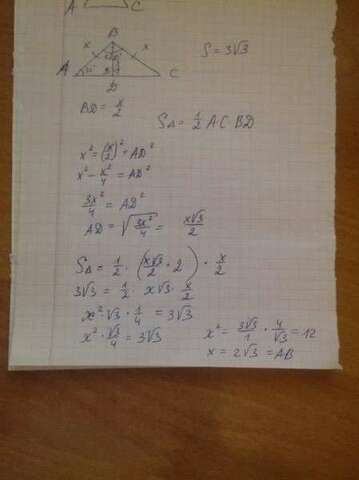 A C
B
x x
A C
D
S = 3√3
BD = x/2
S△ = 1/2 AC · BD
x² = (x/2)² + AD²
x² - x²/4 = AD²
3x²/4 = AD²
AD = √(3x²/4) = x√3/2
S△ = 1/2 · (x√3/2 · 2) · x/2
3√3 = 1/2 · x√3 · x/2
x² · √3 · 1/4 = 3√3
x² · √3/4 = 3√3
x² = 3√3/1 · 4/√3 = 12
x = 2√3 = AB